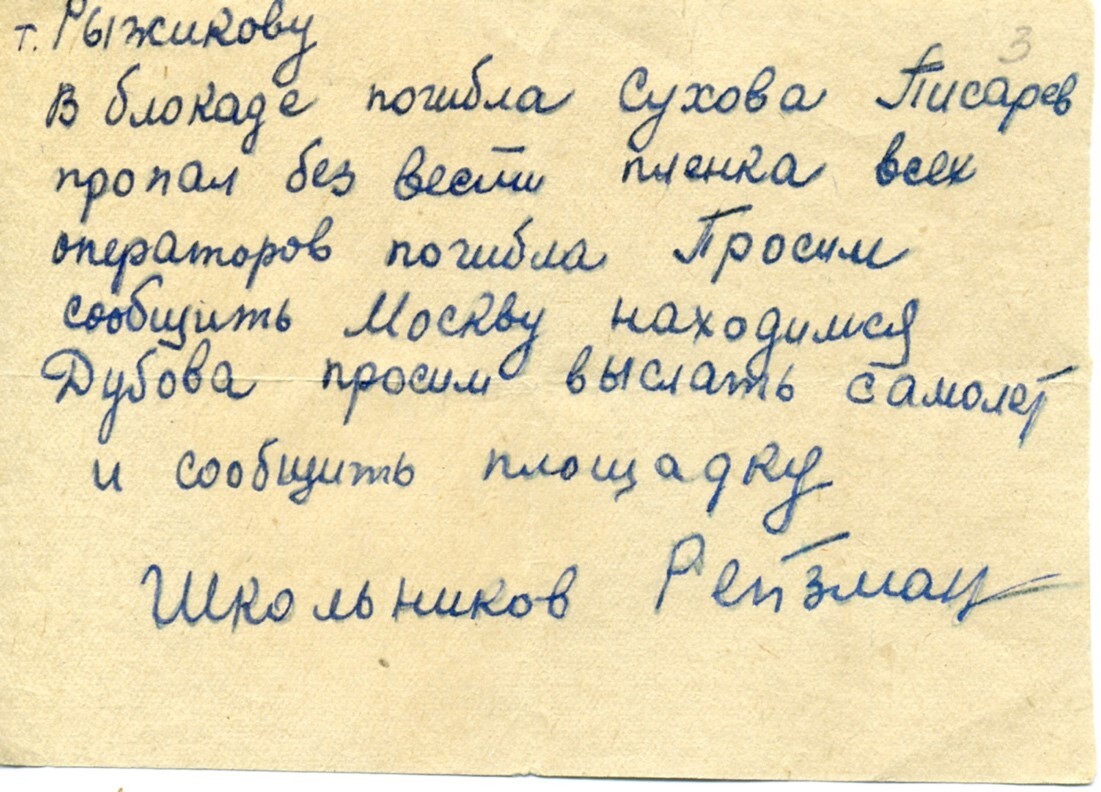 т. Рыжикову
3
В блокаде погибла Сухова Писарев
пропал без вести пленка всех
операторов погибла Просим
сообщить Москву находимся
Дубова просим выслать самолет
и сообщить площадку
Школьников Рейзман